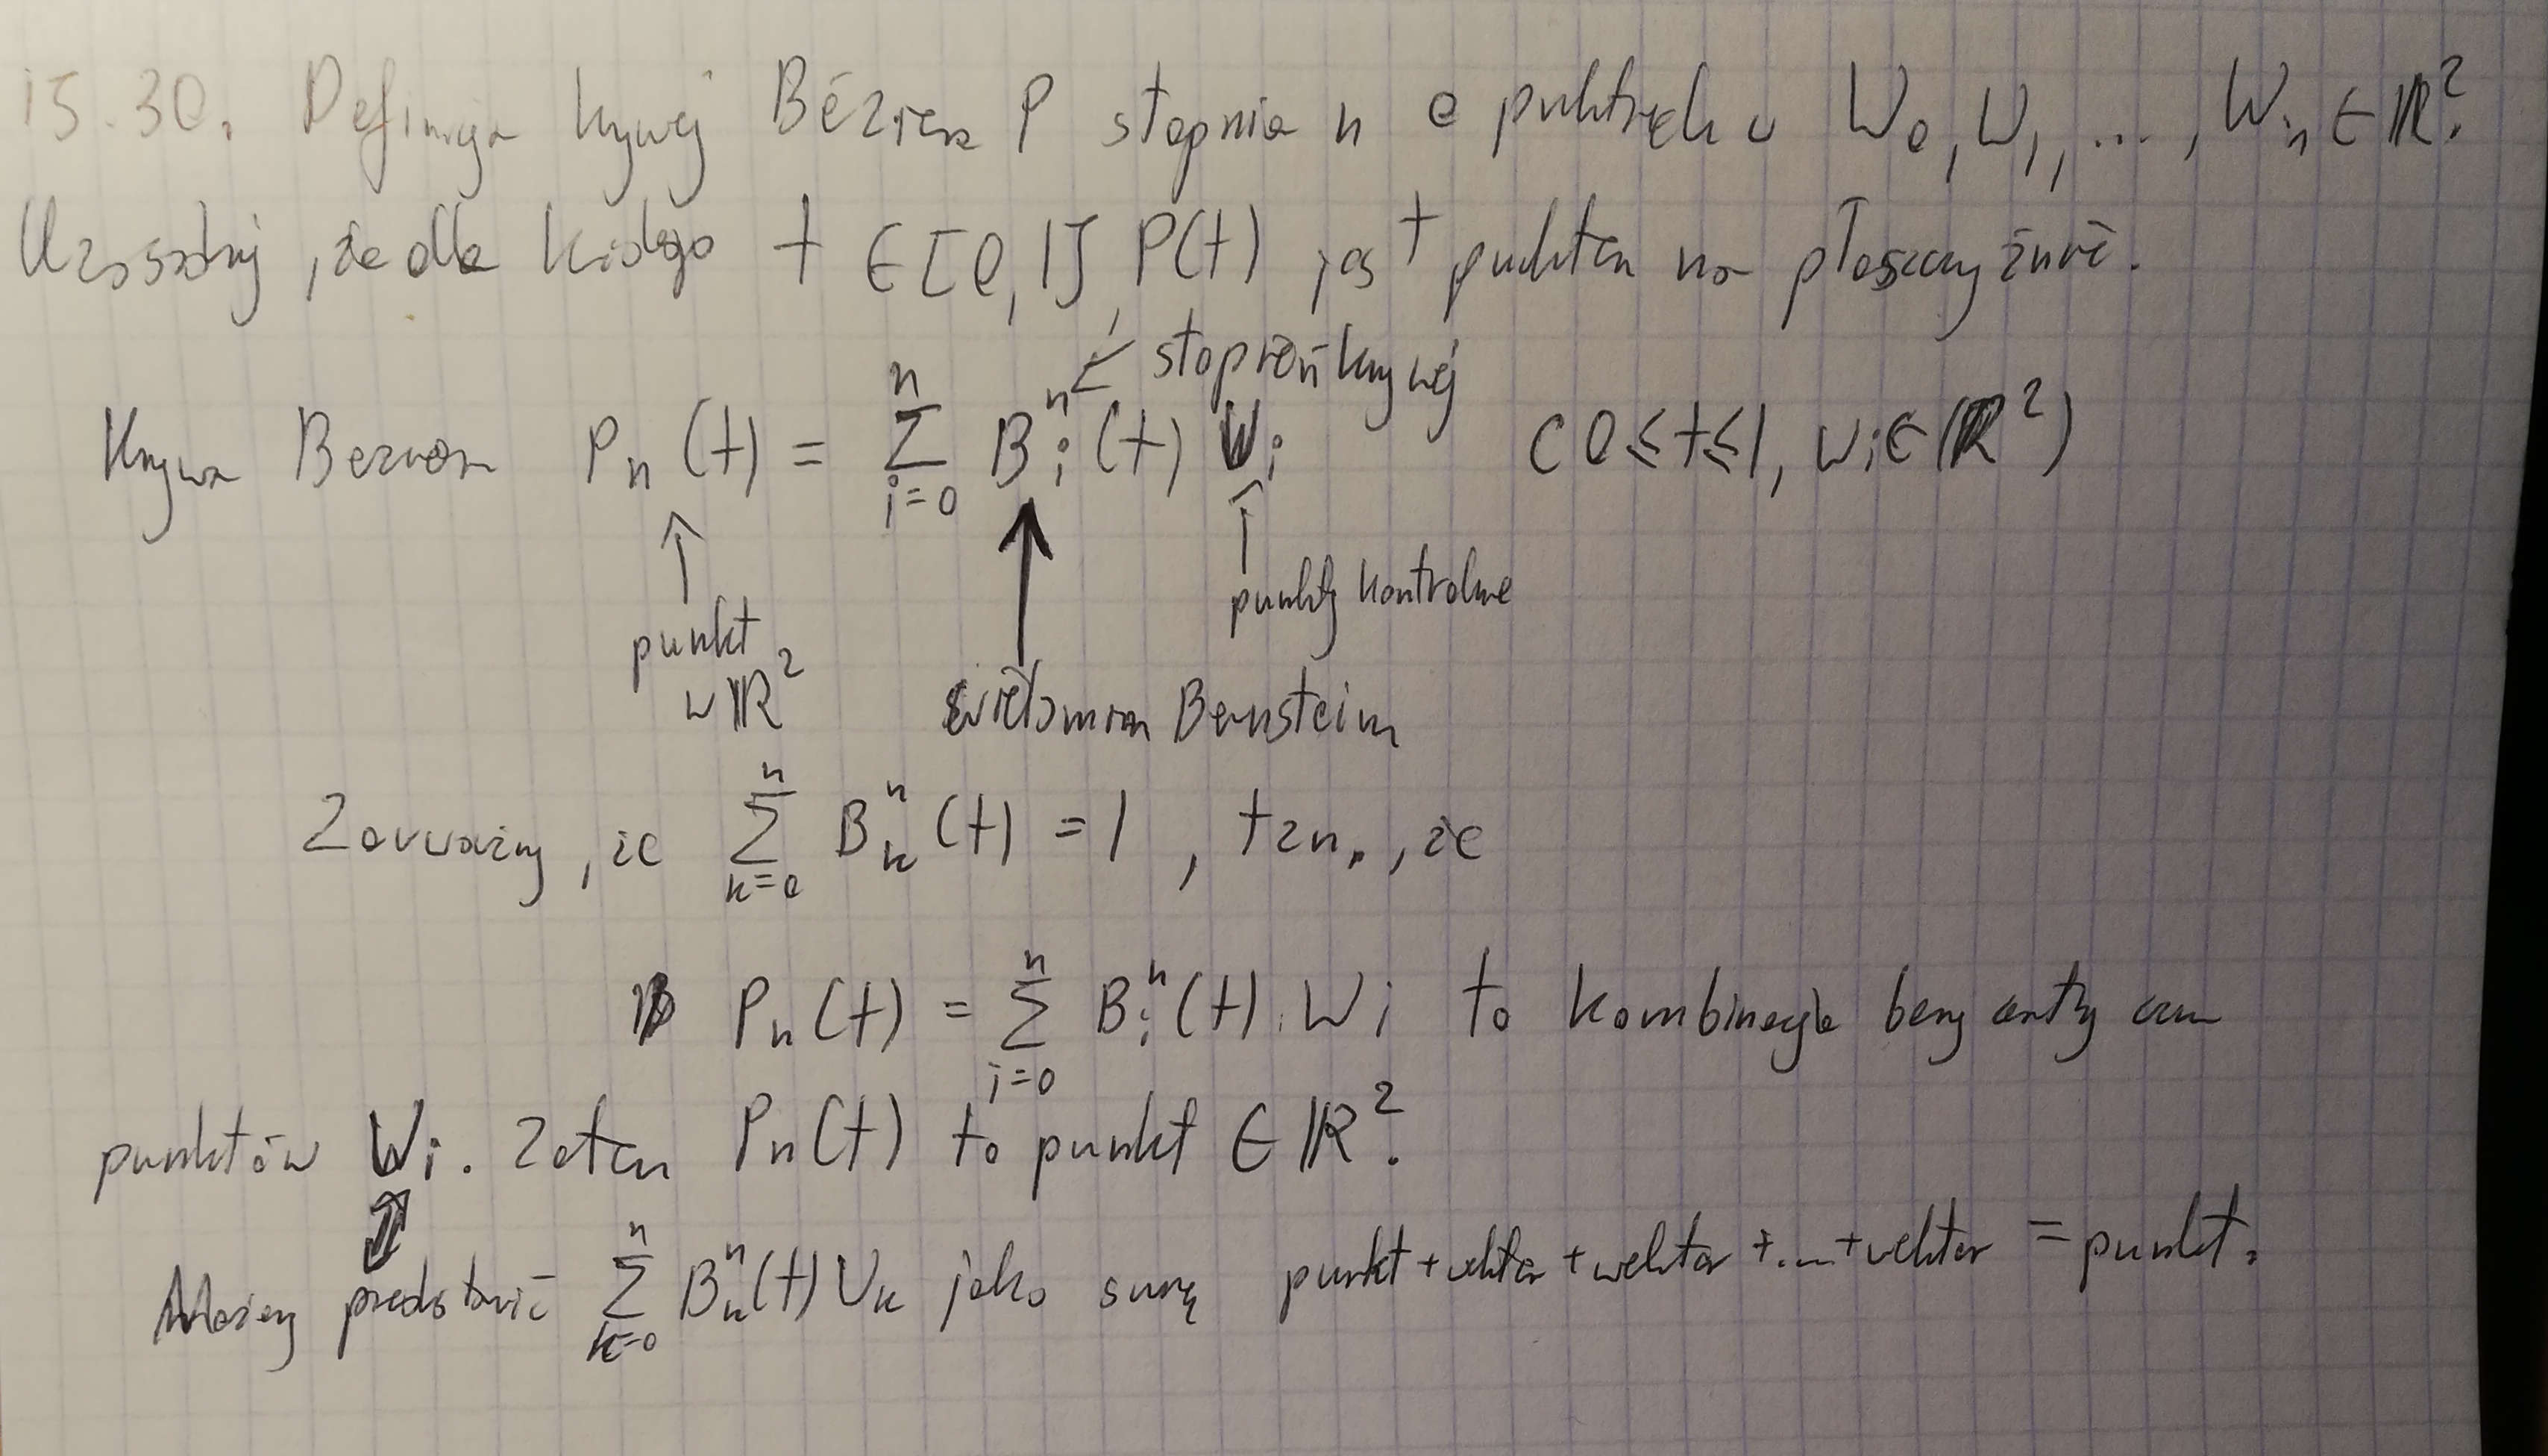 15.30. Definicja krzywej Béziera P stopnia n o punktach W₀, W₁, ..., Wₙ ∈ ℝ².
Uzasadnij, że dla każdego t ∈ [0,1], P(t) jest punktem na płaszczyźnie.
stopień krzywej
Krzywa Beziera Pₙ(t) = Σⁿᵢ₌₀ Bⁿᵢ(t) Wᵢ (0≤t≤1, Wᵢ∈ℝ²)
punkt w ℝ²
wielomian Bernsteina
punkty kontrolne
Zauważmy, że Σⁿₖ₌₀ Bⁿₖ(t) = 1, tzn., że
Pₙ(t) = Σⁿᵢ₌₀ Bᵢⁿ(t) · Wᵢ to kombinacja barycentryczna
punktów Wᵢ. Zatem Pₙ(t) to punkt ∈ ℝ².
Możemy przedstawić Σⁿₖ₌₀ Bⁿₖ(t) Wₖ jako sumę punkt + wektor + wektor + ... + wektor = punkt.